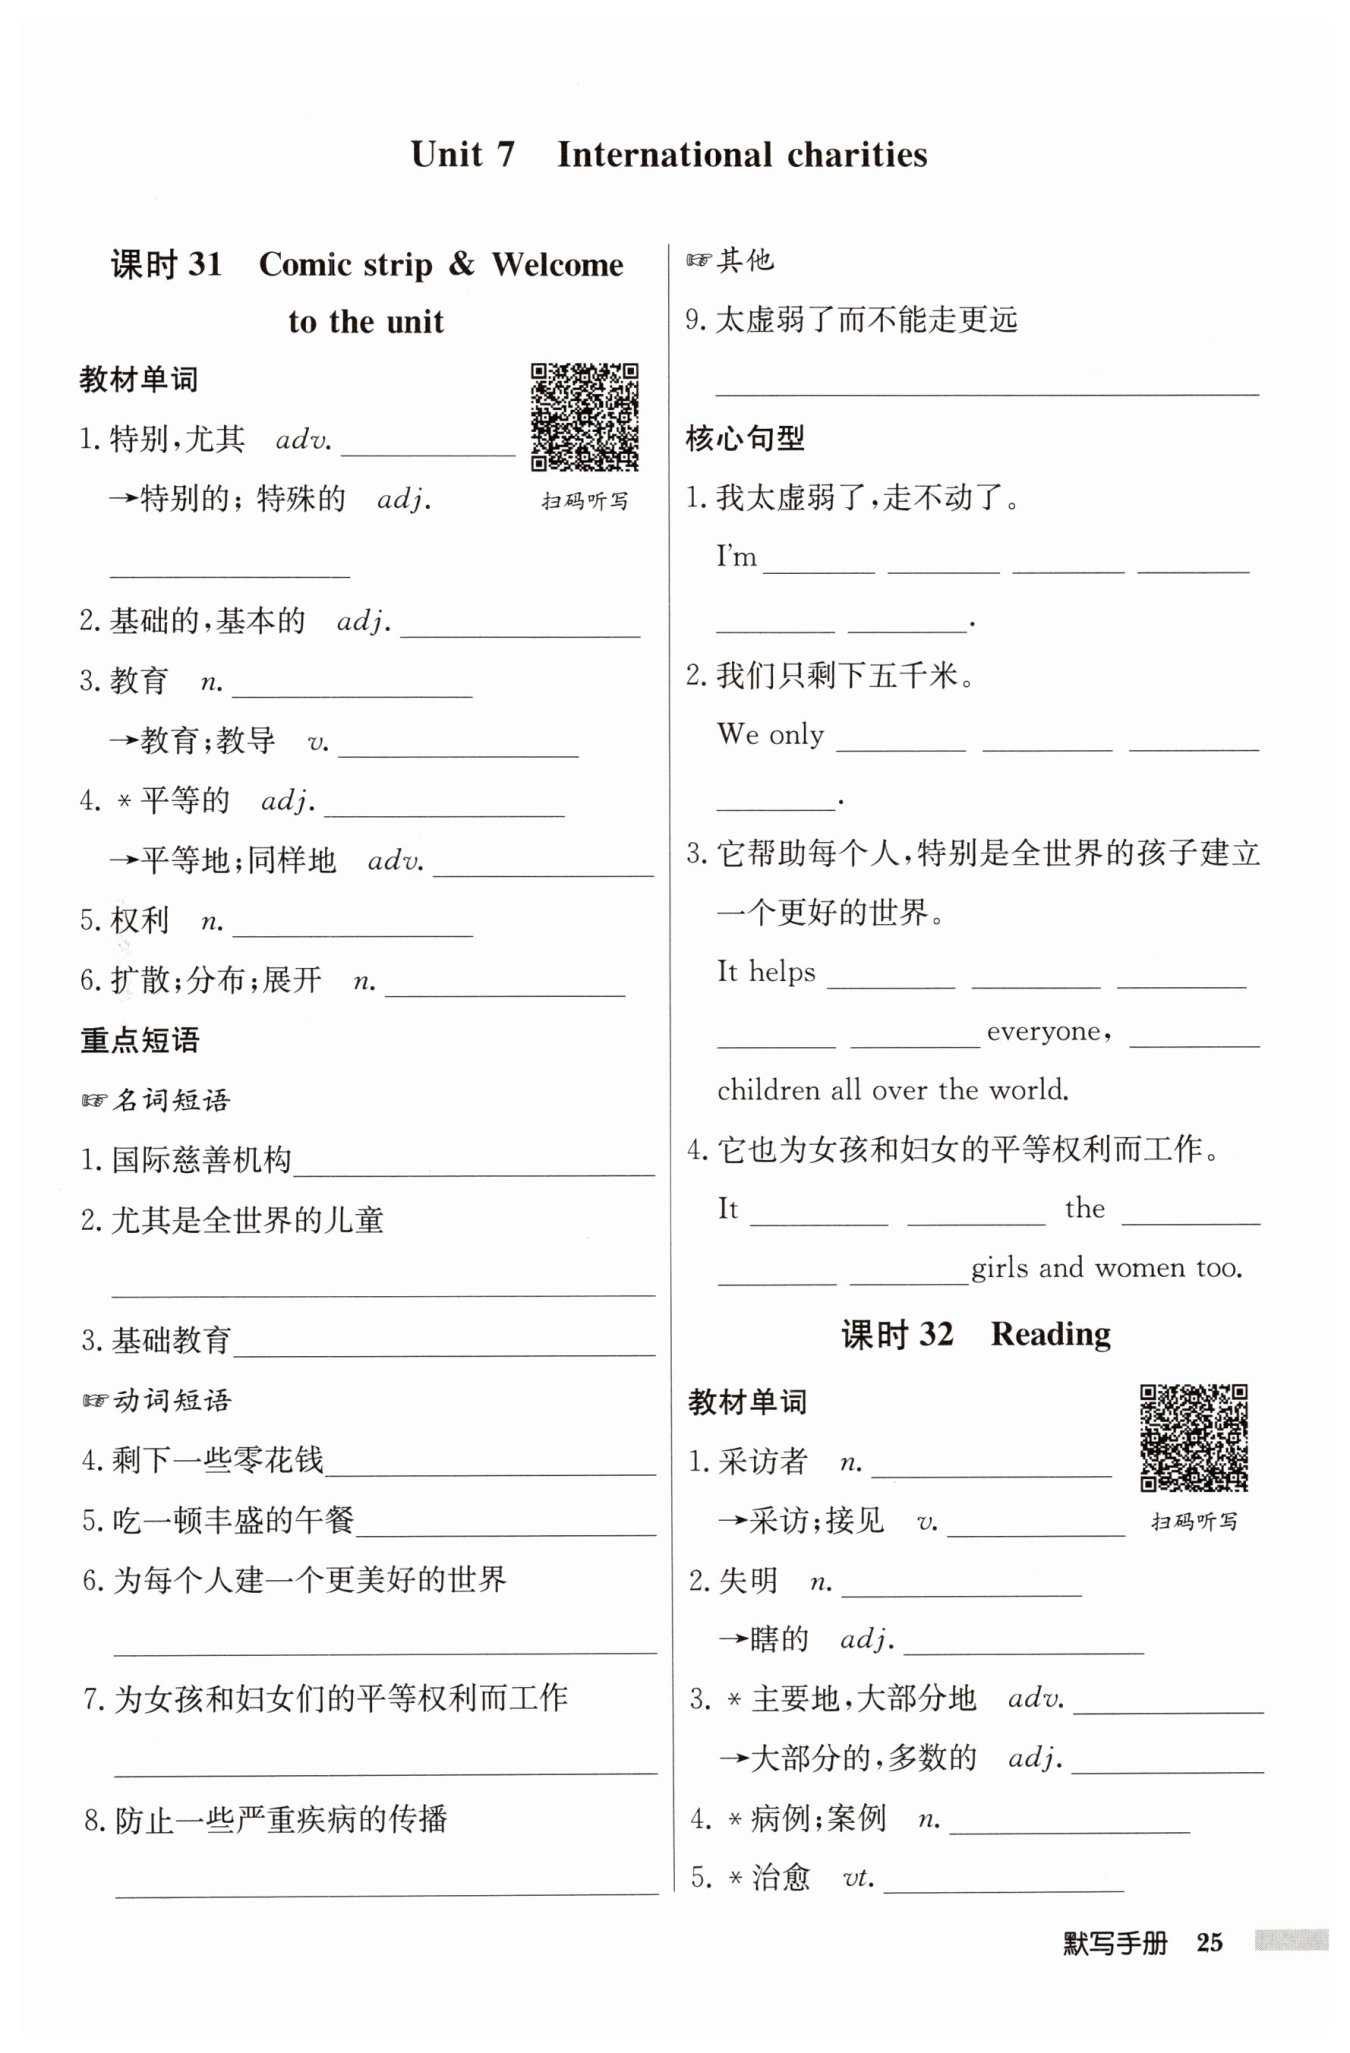 Unit 7  International charities
课时 31  Comic strip & Welcome
to the unit
教材单词
1. 特别,尤其  adv. ________
→特别的; 特殊的  adj.
扫码听写
________
2. 基础的,基本的  adj. ________
3. 教育  n. ________
→教育;教导  v. ________
4. *平等的  adj. ________
→平等地;同样地  adv. ________
5. 权利  n. ________
6. 扩散;分布;展开  n. ________
重点短语
☞名词短语
1. 国际慈善机构________
2. 尤其是全世界的儿童
________
3. 基础教育________
☞动词短语
4. 剩下一些零花钱________
5. 吃一顿丰盛的午餐________
6. 为每个人建一个更美好的世界
________
7. 为女孩和妇女们的平等权利而工作
________
8. 防止一些严重疾病的传播
________
☞其他
9. 太虚弱了而不能走更远
________
核心句型
1. 我太虚弱了,走不动了。
I'm ________ ________ ________ ________
________ ________.
2. 我们只剩下五千米。
We only ________ ________ ________
________.
3. 它帮助每个人,特别是全世界的孩子建立
一个更好的世界。
It helps ________ ________ ________
________ ________ everyone, ________
children all over the world.
4. 它也为女孩和妇女的平等权利而工作。
It ________ ________ the ________
________ ________ girls and women too.
课时 32  Reading
教材单词
1. 采访者  n. ________
→采访;接见  v. ________
扫码听写
2. 失明  n. ________
→瞎的  adj. ________
3. *主要地,大部分地  adv. ________
→大部分的,多数的  adj. ________
4. *病例;案例  n. ________
5. *治愈  vt. ________
默写手册  25